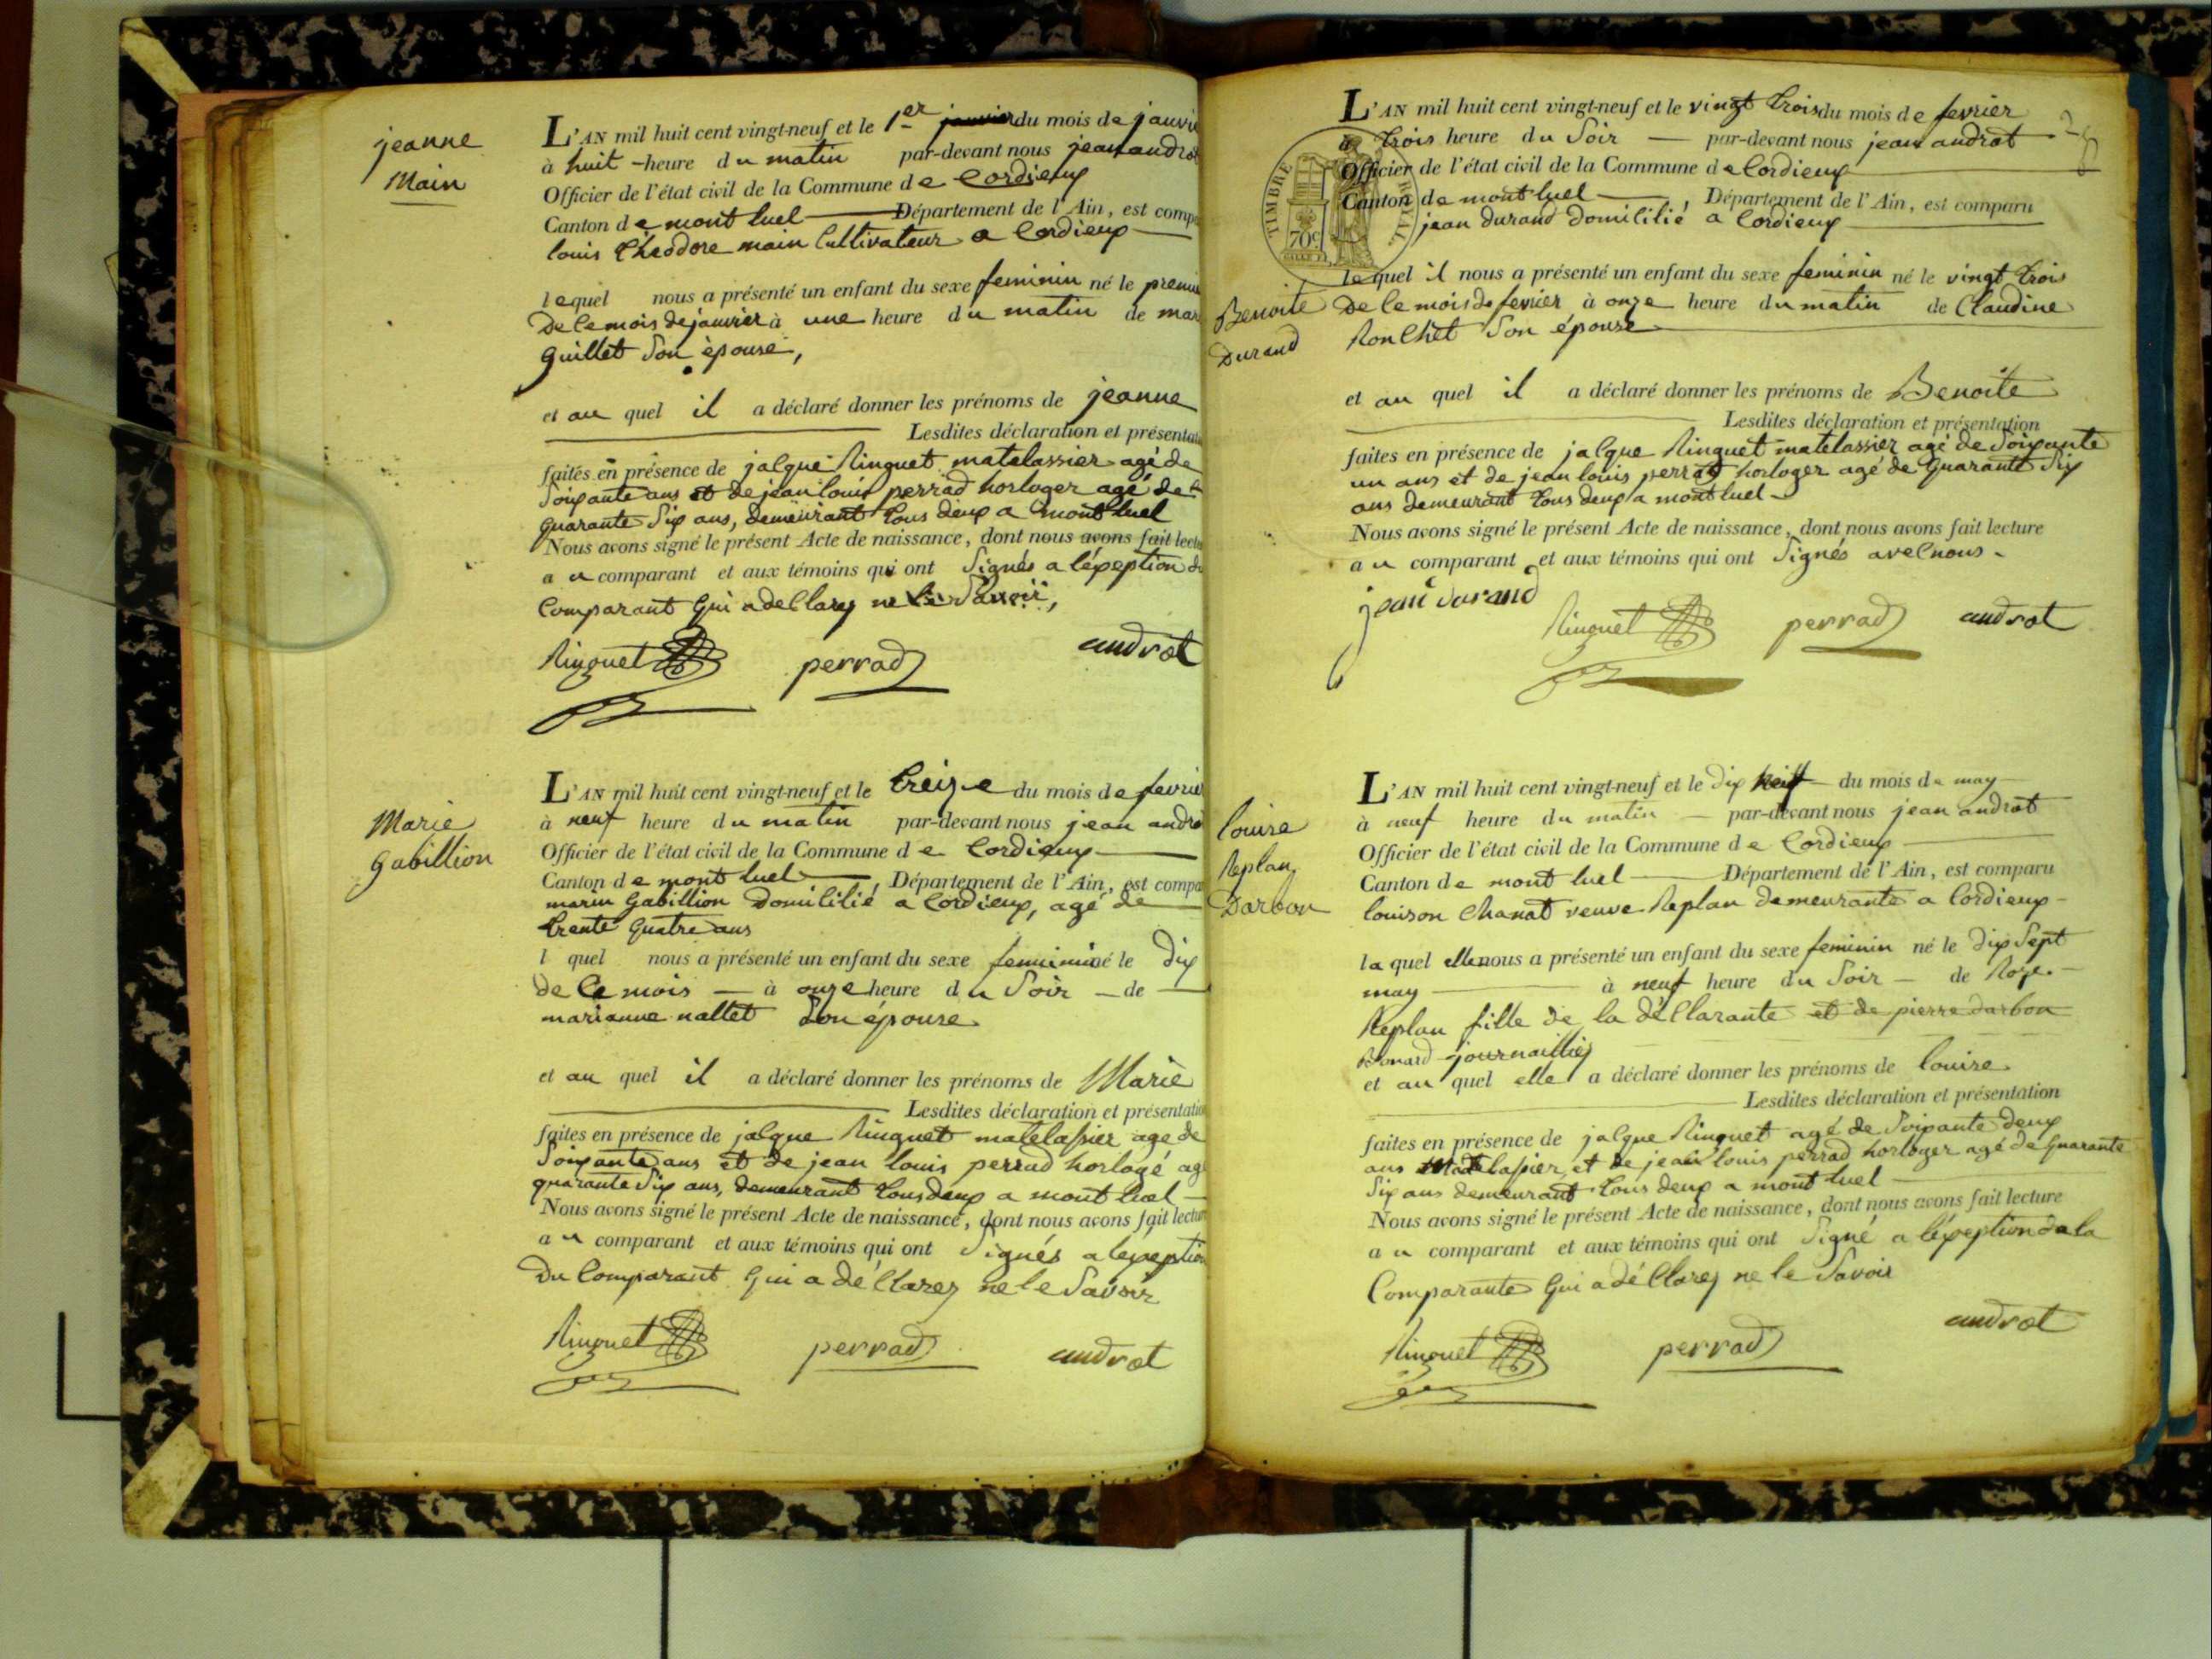 jeanne
Main
L'AN mil huit cent vingt-neuf et le 1er janvier du mois de janvi
à huit - heure du matin par-devant nous jean androt
Officier de l'état civil de la Commune de Cordieux
Canton de mont luel Département de l'Ain, est compa
louis théodore main Cultivateur a Cordieux
lequel nous a présenté un enfant du sexe feminin né le premi
De Ce mois de janvier à une heure du matin de mar
Guillet Son épouse,
et au quel il a déclaré donner les prénoms de jeanne
Lesdites déclaration et présentati
faites en présence de jalque Ringuet matelassier agé de
Soixante ans et de jean louis perrad horloger agé de
quarante Six ans, demeurant tous deux a mont luel
Nous avons signé le présent Acte de naissance, dont nous avons fait lectu
au comparant et aux témoins qui ont Signés a léxeption du
Comparant Qui a dECllarez ne le Savoir,
Ringuet perrad androt
Marie
Gabillion
L'AN mil huit cent vingt-neuf et le treize du mois de fevrie
à neuf heure du matin par-devant nous jean andro
Officier de l'état civil de la Commune de Cordieux
Canton de mont luel Département de l'Ain, est compa
marin Gabillion Domicilié a Cordieux, agé de
trente Quatre ans
l quel nous a présenté un enfant du sexe feminin né le Dix
de Ce mois à onze heure du Soir de
marianne nallet Son épouse
et au quel il a déclaré donner les prénoms de Marie
Lesdites déclaration et présentatio
faites en présence de jalque Ringuet matelassier agé de
Soixante ans et de jean louis perrad horlogé ag
quarante Six ans, demeurant tous deux a mont luel
Nous avons signé le présent Acte de naissance, dont nous avons fait lectur
au comparant et aux témoins qui ont Signés a lexeption
Du Comparant Qui a déCllarez ne le Savoir
Ringuet perrad androt
L'AN mil huit cent vingt-neuf et le vingt trois du mois de fevrier
à trois heure du Soir par-devant nous jean androt
Officier de l'état civil de la Commune de Cordieux
Canton de mont luel Département de l'Ain, est comparu
jean durand domicilié a Cordieux
TIMBRE ROYAL
70c
Benoite
Durand
lequel il nous a présenté un enfant du sexe feminin né le vingt trois
De Ce mois de fevrier à onze heure du matin de Claudine
RonChet Son épouse
et au quel il a déclaré donner les prénoms de Benoite
Lesdites déclaration et présentation
faites en présence de jalque Ringuet matelassier agé de Soixante
un ans et de jean louis perrad horloger agé de Quarante Six
ans demeurant tous deux a mont luel
Nous avons signé le présent Acte de naissance, dont nous avons fait lecture
au comparant et aux témoins qui ont Signés avec nous.
jean durand
Ringuet perrad androt
louise
Replan
Darbon
L'AN mil huit cent vingt-neuf et le dix neuf du mois de may
à neuf heure du matin par-devant nous jean androt
Officier de l'état civil de la Commune de Cordieux
Canton de mont luel Département de l'Ain, est comparu
louison Chanat veuve Replan demeurante a Cordieux
la quel elle nous a présenté un enfant du sexe feminin né le dix Sept
may à neuf heure du Soir de Roze
Replan fille de la déCllarante et de pierre darbon
Bonard journaillier
et au quel elle a déclaré donner les prénoms de louise
Lesdites déclaration et présentation
faites en présence de jalque Ringuet agé de Soixante deux
ans Matelassier et de jean louis perrad horloger agé de Quarante
Six ans demeurant tous deux a mont luel
Nous avons signé le présent Acte de naissance, dont nous avons fait lecture
au comparant et aux témoins qui ont Signé a léxeption de la
Comparante Qui a déCllarez ne le Savoir
Ringuet perrad androt